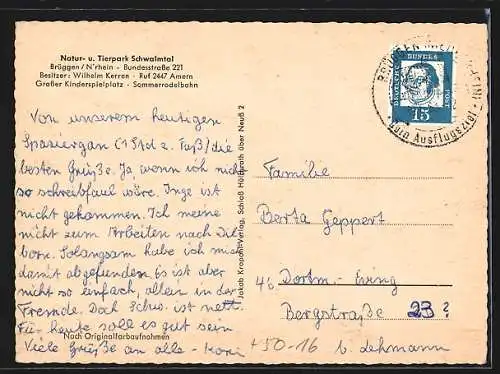 Natur- u. Tierpark Schwalmtal
Brüggen / N'rhein - Bundesstraße 221
Besitzer: Wilhelm Kerren - Ruf 2447 Amern
Großer Kinderspielplatz - Sommerrodelbahn
Von unserem heutigen
Spaziergan (1 Std z. Fuß) die
besten Grüße. Ja, wenn ich nicht
so schreibfaul wäre. Inge ist
nicht gekommen. Ich meine
nicht zum Arbeiten nach
born. Solangsam habe ich mich
damit abgefunden. Es ist aber
nicht so einfach, allein in der
Fremde. Doch ist nett.
Für heute soll es gut sein
Viele Grüße an alle -
Nach Originalfarbaufnahmen
Jakob Krapohl-Verlag, Schloß Hülchrath über Neuß 2
DEUTSCHE BUNDESPOST
15
Ausflugsziel
Familie
Berta Geppert
46 Dortm.-Eving
Bergstraße 23?
+50-16 b. Lehmann